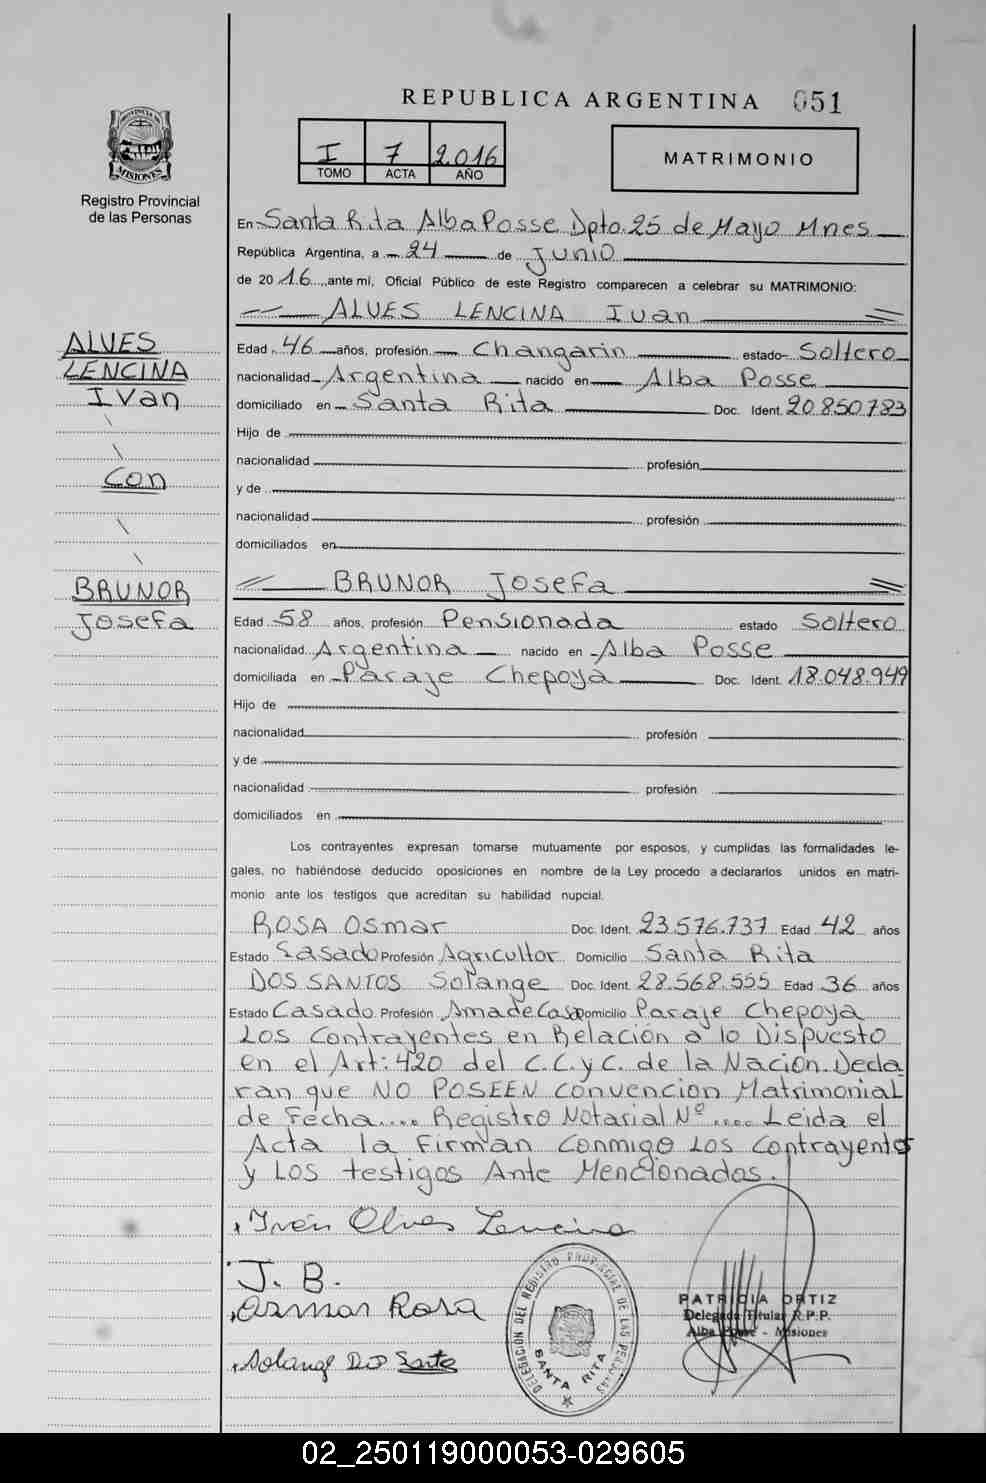 REPUBLICA ARGENTINA 051
PROVINCIA DE MISIONES
Registro Provincial
de las Personas
I 7 2.016
TOMO ACTA AÑO
MATRIMONIO
En Santa Rita Alba Posse Dpto. 25 de Mayo Mnes
República Argentina, a 24 de Junio
de 2016, ante mi, Oficial Público de este Registro comparecen a celebrar su MATRIMONIO:
ALVES LENCINA Ivan
ALVES
LENCINA
Ivan
Con
BRUNOR
Josefa
Edad 46 años, profesión Changarin estado Soltero
nacionalidad Argentina nacido en Alba Posse
domiciliado en Santa Rita Doc. Ident. 20.850.783
Hijo de
nacionalidad profesión
y de
nacionalidad profesión
domiciliados en
BRUNOR Josefa
Edad 58 años, profesión Pensionada estado Soltero
nacionalidad Argentina nacido en Alba Posse
domiciliada en Paraje Chepoya Doc. Ident. 18.048.949
Hijo de
nacionalidad profesión
y de
nacionalidad profesión
domiciliados en
Los contrayentes expresan tomarse mutuamente por esposos, y cumplidas las formalidades le-
gales, no habiéndose deducido oposiciones en nombre de la Ley procedo a declararlos unidos en matri-
monio ante los testigos que acreditan su habilidad nupcial.
ROSA Osmar Doc. Ident. 23.576.737 Edad 42 años
Estado Casado Profesión Agricultor Domicilio Santa Rita
DOS SANTOS Solange Doc. Ident. 28.568.555 Edad 36 años
Estado Casado Profesión Ama de Casa Domicilio Paraje Chepoya
Los Contrayentes en Relación a lo Dispuesto
en el Art: 420 del C.C.y C. de la Nación. Decla
ran que NO POSEEN convencion Matrimonial
de Fecha.... Registro Notarial Nº .... Leida el
Acta la Firman conmigo Los Contrayentes
y Los testigos Ante Mencionados.
Iván Alves Lencina
J. B.
Osmar Rosa
Solange Dos Santos
DELEGACION DEL REGISTRO PROVINCIAL DE LAS PERSONAS
SANTA RITA
PATRICIA ORTIZ
Delegada Titular R.P.P.
Alba Posse - Misiones
02_250119000053-029605